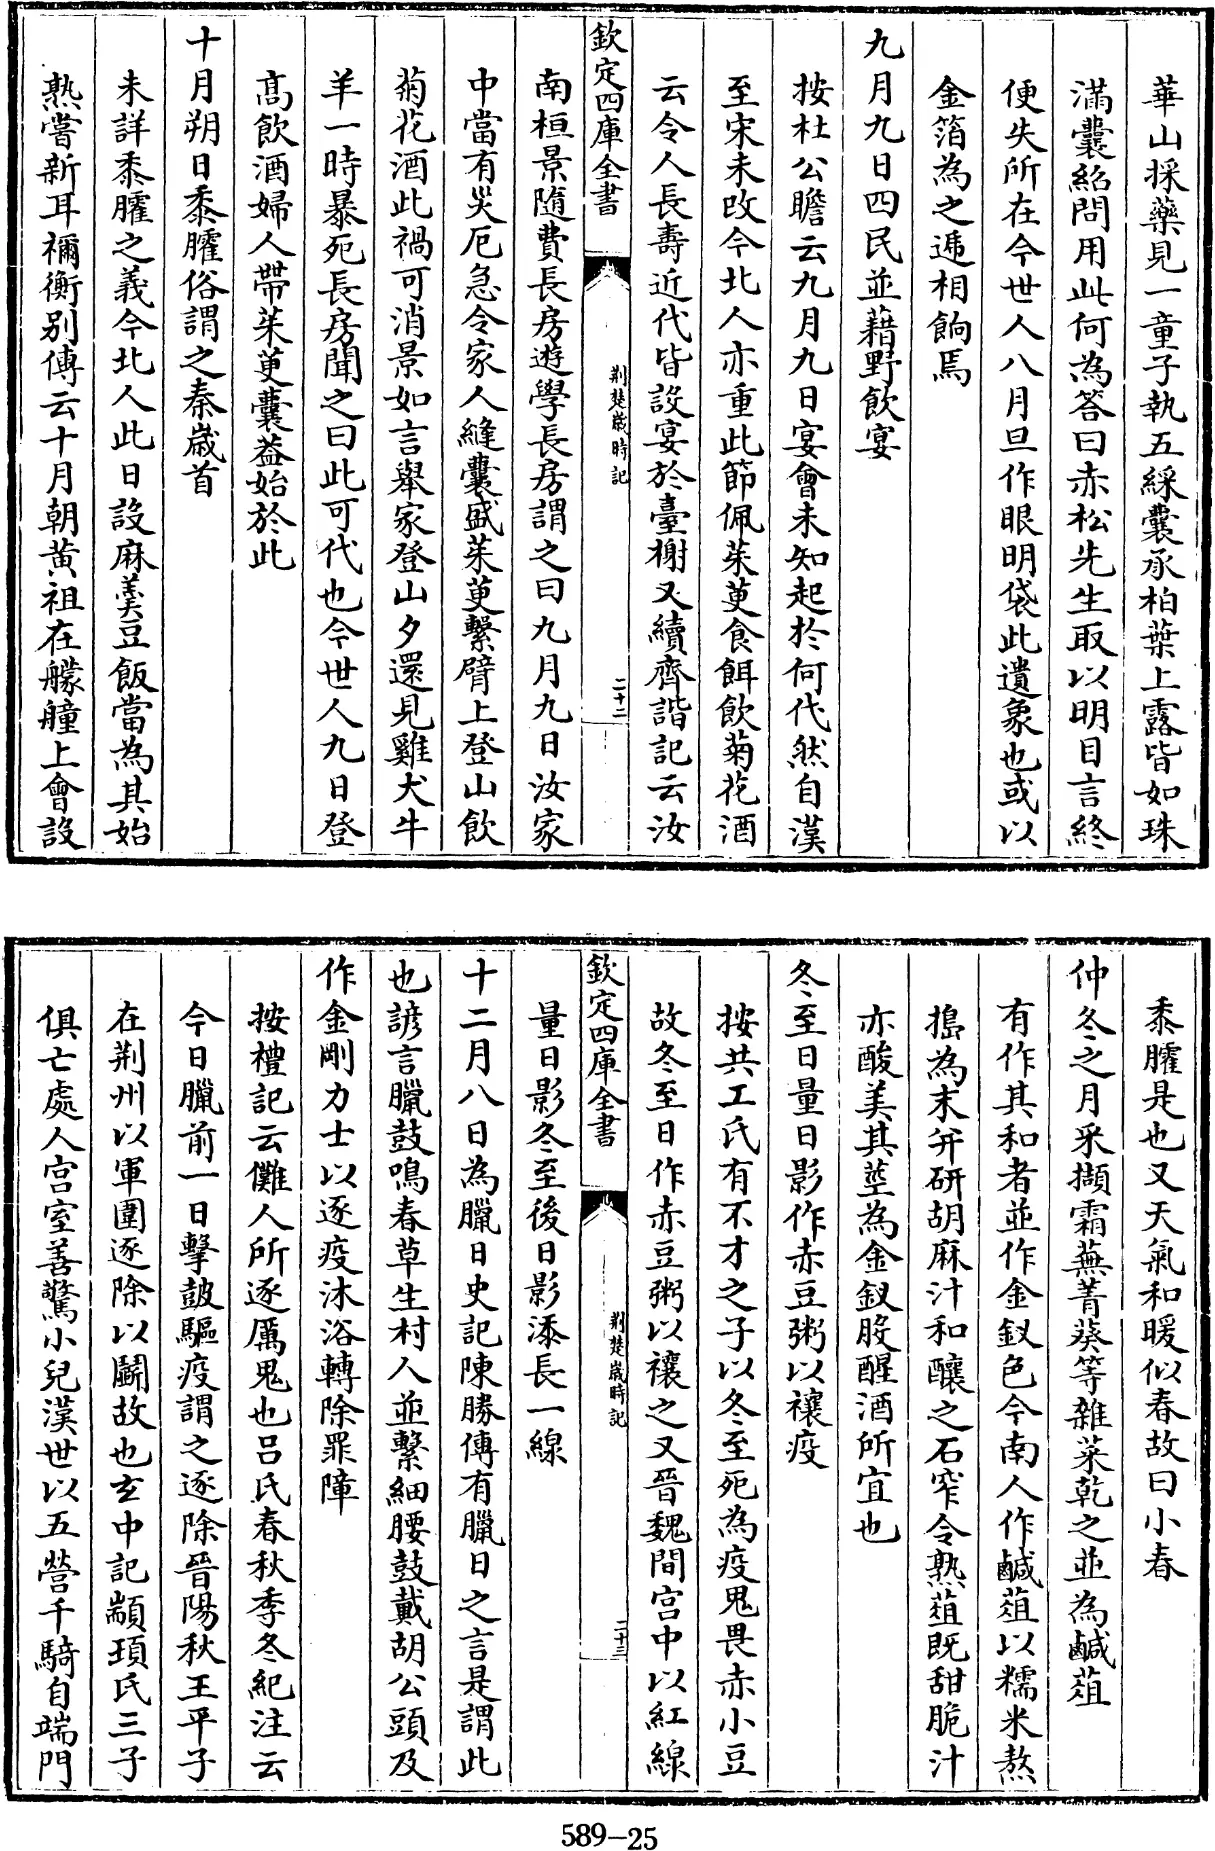 華山採藥見一童子執五綵囊承柏葉上露皆如珠
滿囊紹問用此何為答曰赤松先生取以明目言終
便失所在今世人八月旦作眼明袋此遺象也或以
金箔為之遞相餉焉
九月九日四民並藉野飲宴
按杜公瞻云九月九日宴會未知起於何代然自漢
至宋未改今北人亦重此節佩茱萸食餌飲菊花酒
云令人長壽近代皆設宴於臺榭又續齊諧記云汝
欽定四庫全書
荆楚歲時記
二十二
南桓景隨費長房遊學長房謂之曰九月九日汝家
中當有災厄急令家人縫囊盛茱萸繫臂上登山飲
菊花酒此禍可消景如言舉家登山夕還見雞犬牛
羊一時暴死長房聞之曰此可代也今世人九日登
高飲酒婦人帶茱萸囊葢始於此
十月朔日黍臛俗謂之秦歲首
未詳黍臛之義今北人此日設麻羹豆飯當為其始
熟嘗新耳禰衡别傳云十月朝黄祖在艨艟上會設
黍臛是也又天氣和暖似春故曰小春
仲冬之月采擷霜蕪菁葵等雜菜乾之並為鹹葅
有作其和者並作金釵色今南人作鹹葅以糯米熬
搗為末并研胡麻汁和釀之石窄令熟葅既甜脆汁
亦酸美其莖為金釵股醒酒所宜也
冬至日量日影作赤豆粥以禳疫
按共工氏有不才之子以冬至死為疫鬼畏赤小豆
故冬至日作赤豆粥以禳之又晉魏間宫中以紅線
欽定四庫全書
荆楚歲時記
二十三
量日影冬至後日影添長一線
十二月八日為臘日史記陳勝傳有臘日之言是謂此
也諺言臘鼓鳴春草生村人並繫細腰鼓戴胡公頭及
作金剛力士以逐疫沐浴轉除罪障
按禮記云儺人所逐厲鬼也吕氏春秋季冬紀注云
今日臘前一日擊鼓驅疫謂之逐除晉陽秋王平子
在荆州以軍圍逐除以鬭故也玄中記顓頊氏三子
俱亡處人宫室善驚小兒漢世以五營千騎自端門
589—25